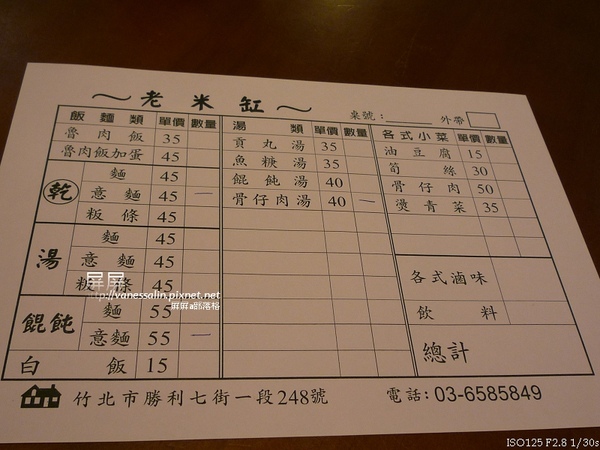 ～老米缸～
桌號：______ 外帶
飯麵類 單價 數量 湯類 單價 數量 各式小菜 單價 數量
魯肉飯 35 貢丸湯 35 油豆腐 15
魯肉飯加蛋 45 魚糠湯 35 筍絲 30
乾 麵 45 餛飩湯 40 骨仔肉 50
意麵 45 一 骨仔肉湯 40 一 燙青菜 35
粄條 45
湯 麵 45
意麵 45 各式滷味
粄條 45
餛飩 麵 55 飲料
意麵 55 一 總計
白飯 15
竹北市勝利七街一段248號 電話：03-6585849
屏屏
http://vanessalin.pixnet.net
屏屏a部落格
ISO125 F2.8 1/30s